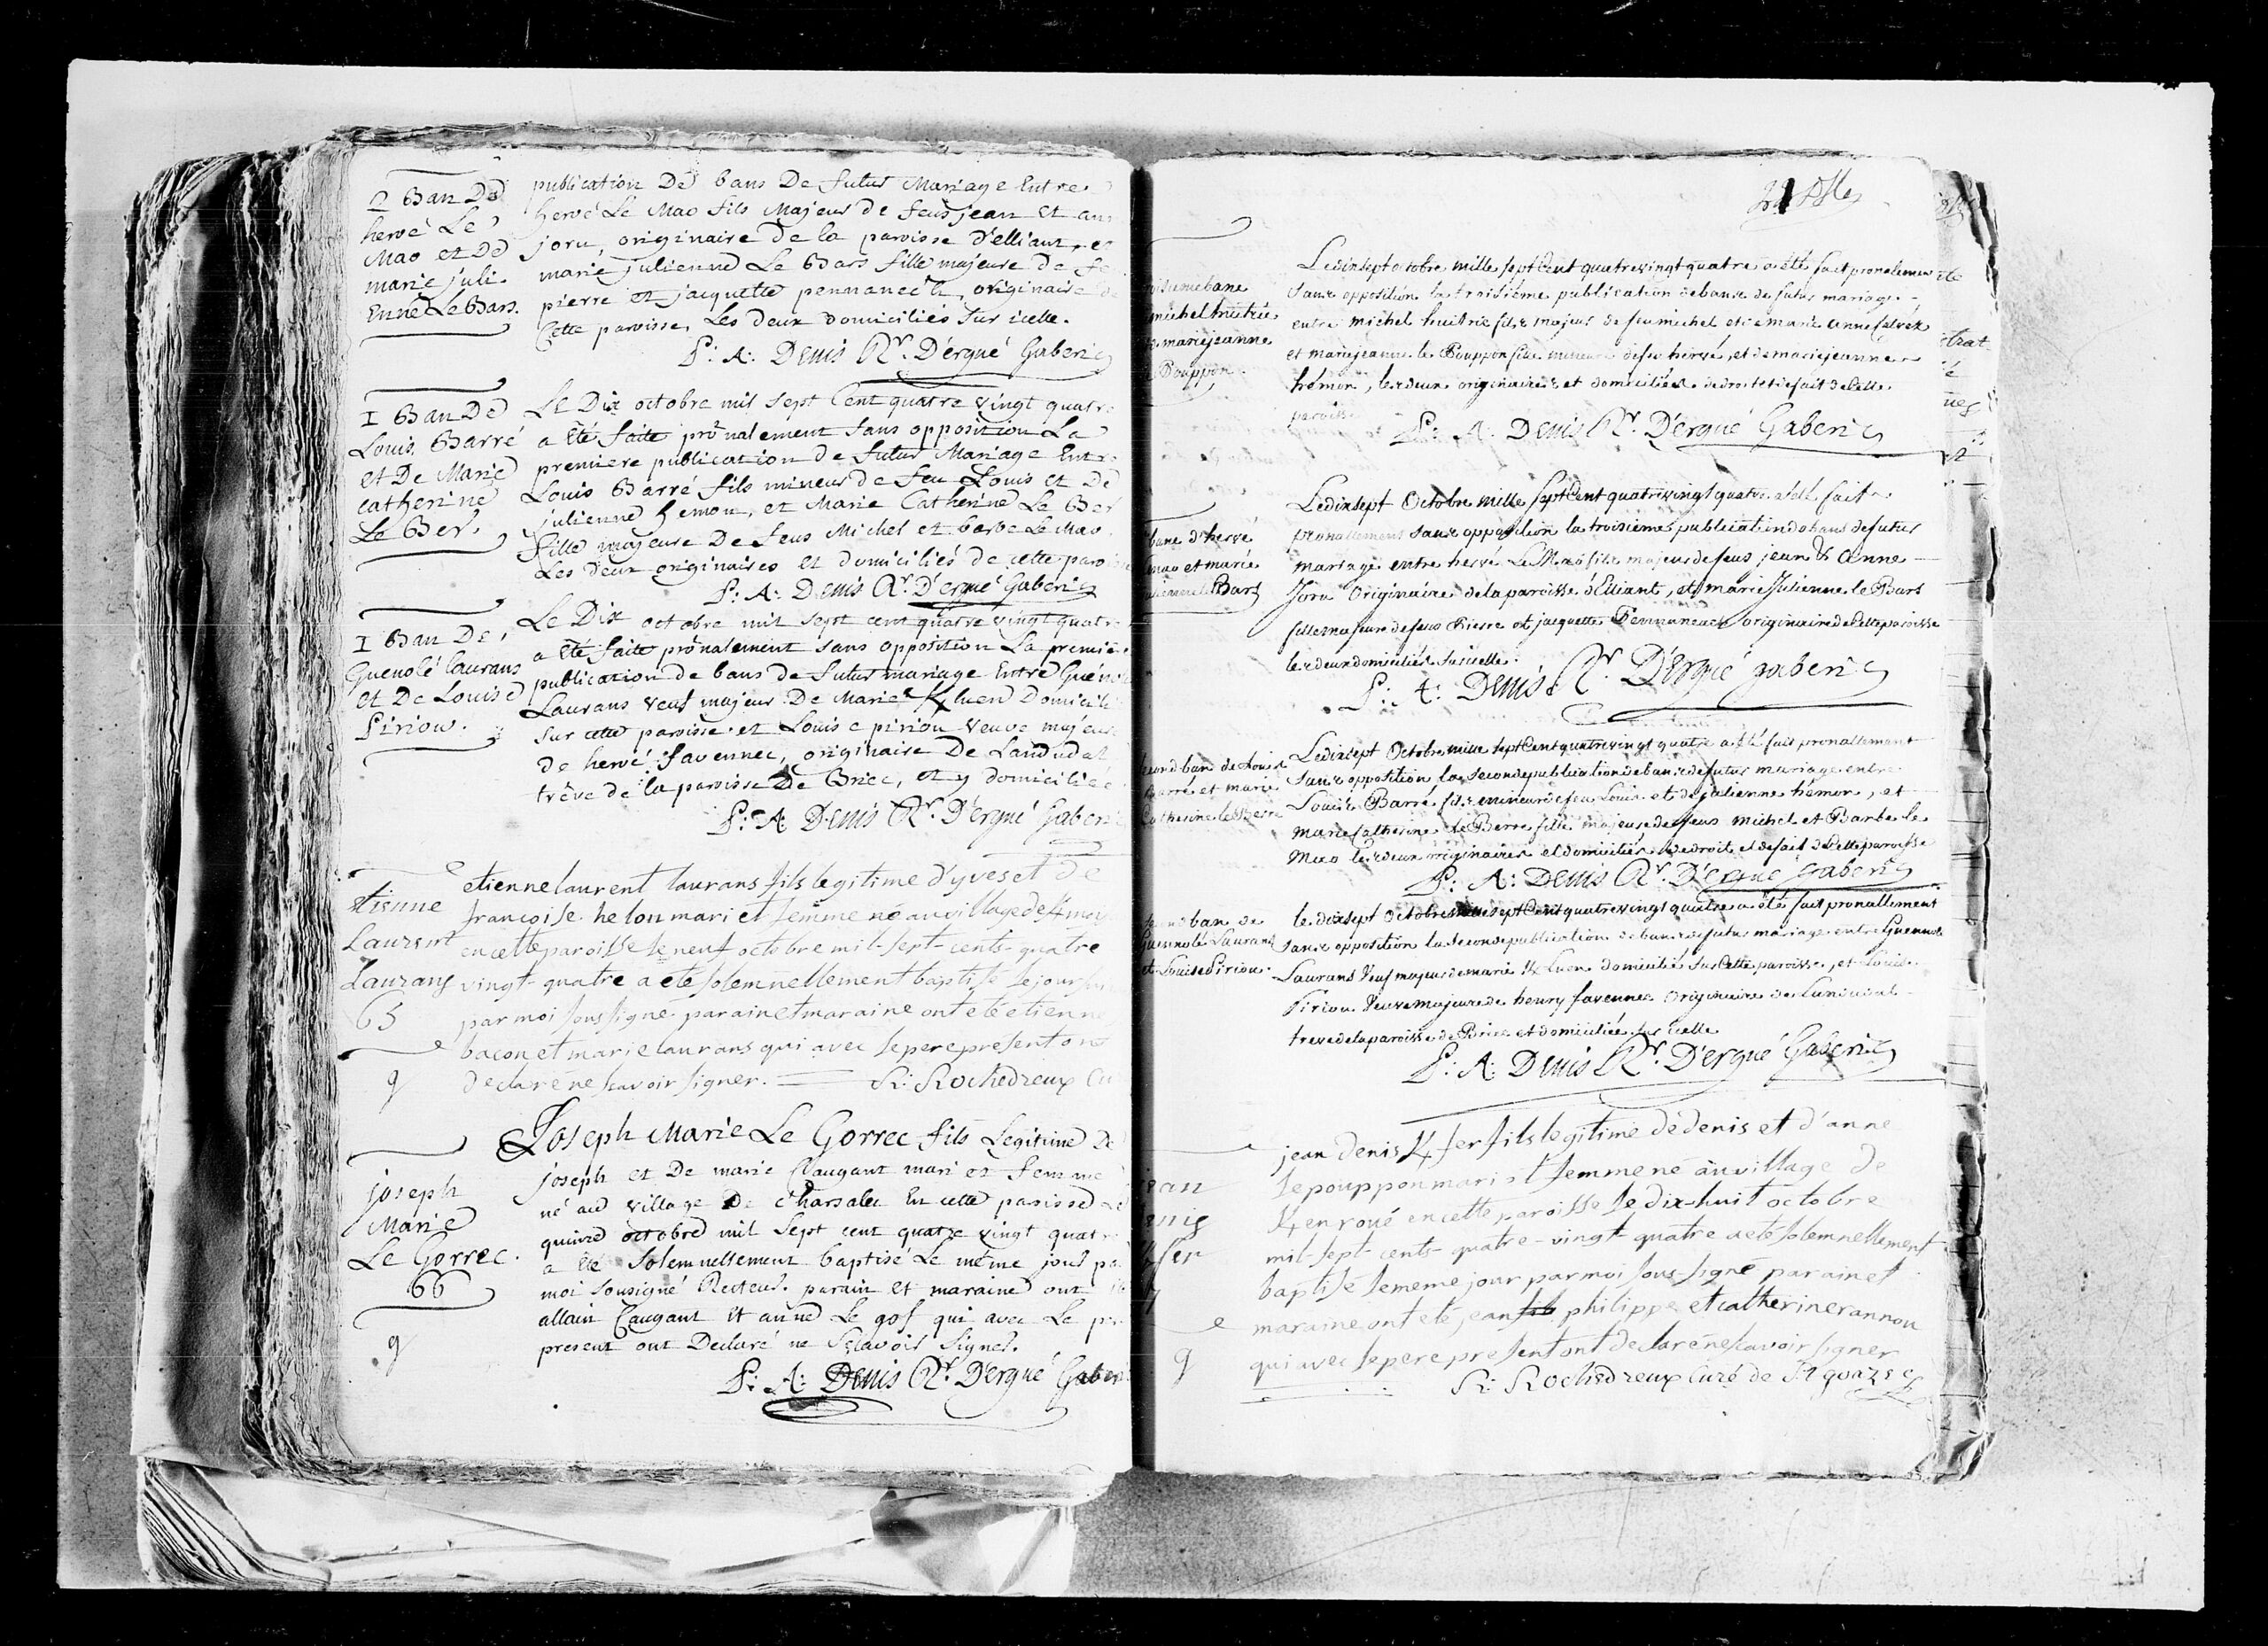 2 Ban De
hervé Le
Mao et De
marie juli-
enne Le Bars.
publication De bans De futur Mariage Entre
hervé Le Mao fils Majeur de feus jean et an
joru, originaire de la paroisse d'elliant, et
marie julienne Le Bars fille majeure de fe
pierre et jacquette pennanec'h, originaire de
Cette paroisse, Les deux domiciliés sur icelle.
P: A: Denis Rr. D'ergué Gaberic
1 Ban De
Louis Barré
et De Marie
catherine
Le Ber.
Le Dix octobre mil sept Cent quatre vingt quatre
a Eté faite prônalement sans opposition La
premiere publication de futur Mariage Entre
Louis Barré fils mineur de feu Louis et De
julienne hemon, et Marie Catherine Le Ber
fille majeure De feus Michel et barbe Le Mao
Les deux originaires et domiciliés de cette paroisse
P: A: Denis Rr. D'ergué Gaberic
1 Ban De
Guenolé laurans
et De Louise
Piriou.
Le Dix octobre mil sept cent quatre vingt quatre
a Eté faite prônalement sans opposition La premie
publication de bans de futur mariage Entre Guéno
Laurans veuf majeur De Marie Kluen Domicilié
sur cette paroisse et Louise piriou veuve majeure
de hervé favennec, originaire De Landudal
trêve de la paroisse De Briec, et y domiciliée
P: A: Denis Rr. D'ergué Gaberic
etienne
Laurent
Laurans
65
g
etienne laurent laurans fils legitime d'yves et de
françoise helou mari et femme né au village de
en cette paroisse le neuf octobre mil-sept-cents-quatre
vingt-quatre a eté solemnellement baptisé le jour
par moi sous signe parain et maraine ont eté etienne
bacon et marie laurans qui avec le pere present ont
declaré ne scavoir signer. R: Rochedreux Cu
joseph
Marie
Le Gorrec.
66
g
Joseph Marie Le Gorrec fils Legitime De
joseph et De marie Caugant mari et femme
né au village De en cette paroisse Le
quinze octobre mil sept cent quatre vingt quatre
a Eté solemnellement baptisé Le même jour pa
moi sousigné Recteur. parain et maraine ont
allain Caugant et anne Le gof qui avec Le pe
present ont Declaré ne sçavoir signer.
P: A: Denis Rr. D'ergué Gaberic
troisieme bane
michel huitric
marie jeanne
Pouppon.
Le dix sept octobre mille sept Cent quatre vingt quatre a été fait pronalement
sans opposition la troisième publication de bans de futur mariage
entre michel huitric fils majeur de feu michel et de marie anne
et marie jeanne le Pouppon fille mineure de feu hervé, et de marie jeanne
hémon, les deux originaires et domiciliés de droit et de fait de Cette
paroisse
P: A: Denis Rr. D'ergué Gaberic
bane d'hervé
mao et marie
julienne le Bars
Le dix sept Octobre mille sept Cent quatre vingt quatre a été fait
pronallement sans opposition la troisième publication de bans de futur
mariage entre hervé Le Mao fils majeur de feus jean & anne
Joru Originaire de la paroisse d'Elliant, et marie Julienne le Bars
fille majeure de feus Pierre et jacquette Pennaneach originaire de Cette paroisse
les deux domiciliés sur icelle.
P: A: Denis Rr. D'ergué gaberic
second ban de Louis
Barré et marie
Catherine le Berre
Le dix sept Octobre mille sept Cent quatre vingt quatre a été fait pronallemant
sans opposition la seconde publication de bans de futur mariage entre
Louis Barré fils mineur de feu Louis et de julienne hémon, et
marie Catherine Le Berre fille majeure de feus michel et Barbe le
Mao les deux originaires et domiciliés de droit et de fait de Cette paroisse
P: A: Denis Rr. D'ergué Gaberic
second ban de
Guennolé Laurans
et Louise Piriou.
le dix sept Octobre mille sept Cent quatre vingt quatre a été fait pronallement
sans opposition la seconde publication de bans de futur mariage entre Guennolé
Laurans Veuf majeur de marie K Luen domicilié sur Cette paroisse, et Louise
Piriou Veuve majeure de henry favennec Originaire de Landudal
treve de la paroisse de Briec et domiciliée sur icelle
P: A: Denis Rr. D'ergué Gaberic
jean
denis
Kfer
7
g
jean denis Kfer fils legitime de denis et d'anne
le pouppon mari et femme né au village de
Kenroué en cette paroisse le dix-huit octobre
mil-sept-cents-quatre-vingt-quatre a eté solemnellement
baptisé le meme jour par moi sous-signe parain et
maraine ont eté jean philippe et catherine rannou
qui avec le pere present ont declaré ne scavoir signer
R: Rochedreux Curé de St guazec